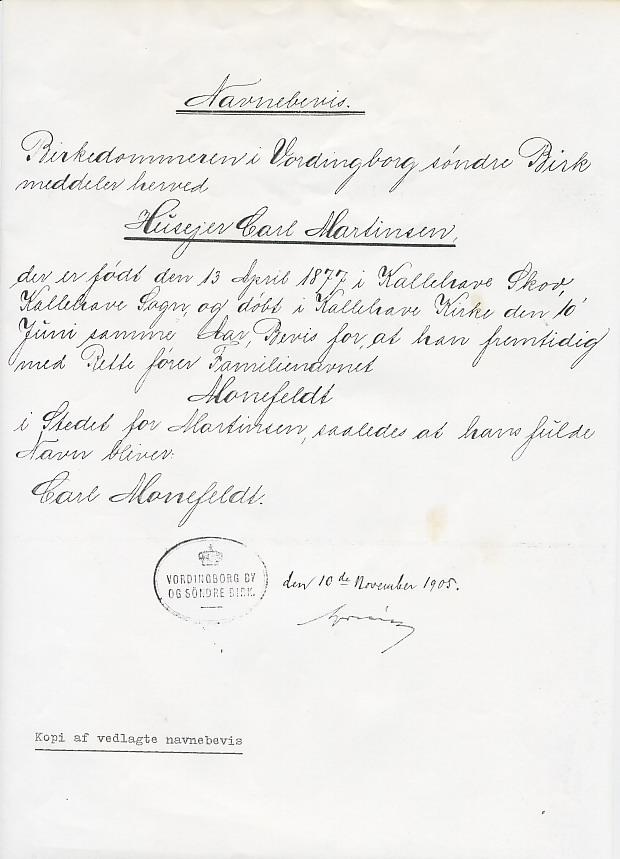 Navnebevis.
Birkedommeren i Vordingborg søndre Birk
meddeler herved
Husejer Carl Martinsen,
der er født den 13 April 1877 i Kallehave Skov,
Kallehave Sogn, og døbt i Kallehave Kirke den 10'
Juni samme Aar, Bevis for, at han fremtidig
med Rette fører Familienavnet
Monefeldt
i Stedet for Martinsen, saaledes at hans fulde
Navn bliver:
Carl Monefeldt.
VORDINGBORG BY
OG SÖNDRE BIRK.
den 10de November 1905.
Kopi af vedlagte navnebevis